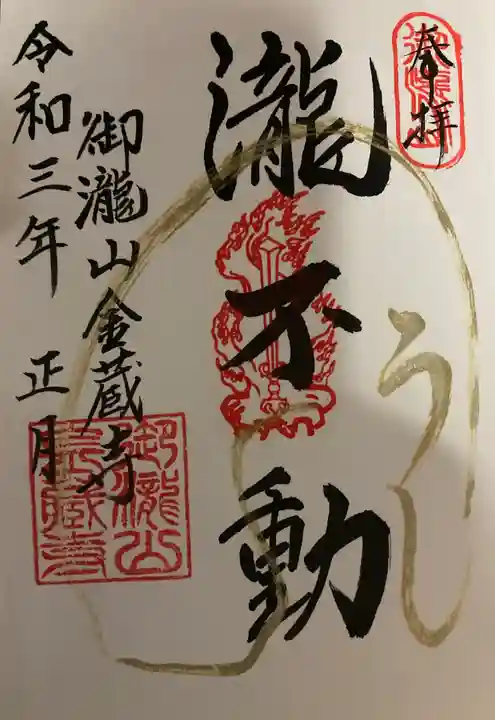 奉拝
瀧不動
うし
御瀧山金蔵寺
令和三年 正月
御瀧山
金蔵寺